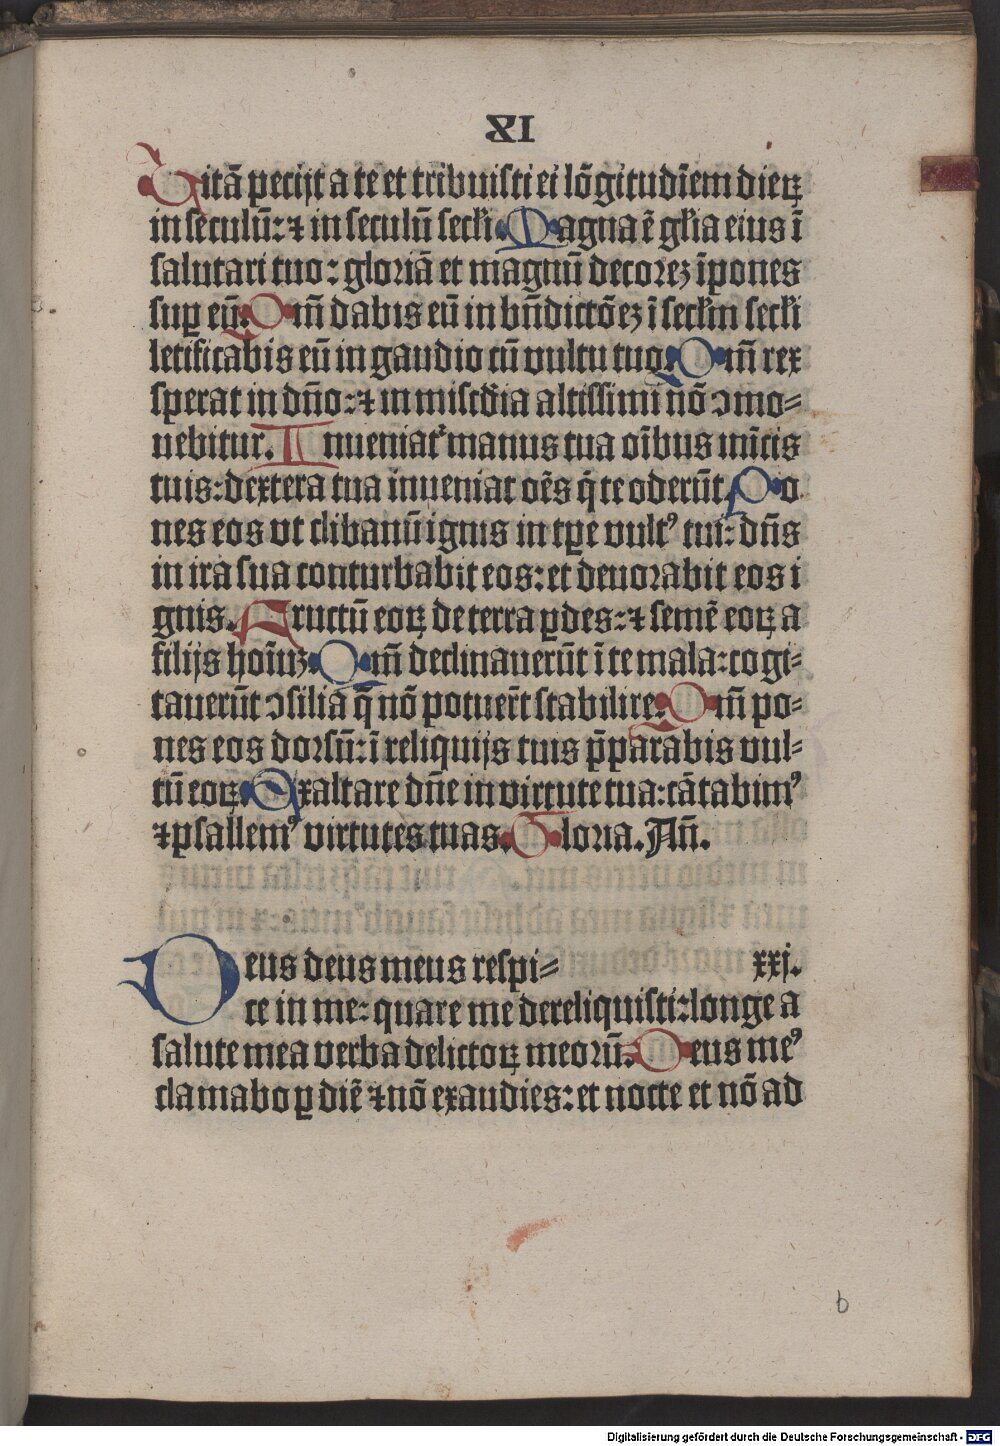 XI
Vitā pecijt a te et tribuisti ei lōgitudīem dieꝝ
in seculū: ⁊ in seculū secłi. Magna ē głia eius ī
salutari tuo: gloriā et magnū decorez īpones
suꝑ eū. Qm̄ dabis eū in bn̄dictōez ī secłm secłi
letificabis eū in gaudio cū vultu tuo. Qm̄ rex
sperat in dn̄o: ⁊ in misc̄dia altissimi nō ɔmo-
uebitur. Inueniat᷑ manus tua oībus inīcis
tuis: dextera tua inueniat oēs q̄ te oderūt. Po
nes eos vt clibanū ignis in tꝑe vultꝰ tui: dn̄s
in ira sua conturbabit eos: et deuorabit eos i
gnis. Fructū eoꝝ de terra ꝑdes: ⁊ semē eoꝝ a
filijs hoīuz. Qm̄ declinauerūt ī te mala: cogi-
tauerūt ɔsilia q̄ nō potuer̄t stabilire. Qm̄ po-
nes eos dorsū: ī reliquijs tuis p̄parabis vul-
tū eoꝝ. Exaltare dn̄e in virtute tua: cātabimꝰ
⁊ psallemꝰ virtutes tuas. Gloria. An̄.
Deus deus meus respi- xxj.
ce in me: quare me dereliquisti: longe a
salute mea verba delictoꝝ meorū. Deus meꝰ
clamabo ꝑ diē ⁊ nō exaudies: et nocte et nō ad
b
Digitalisierung gefördert durch die Deutsche Forschungsgemeinschaft - DFG